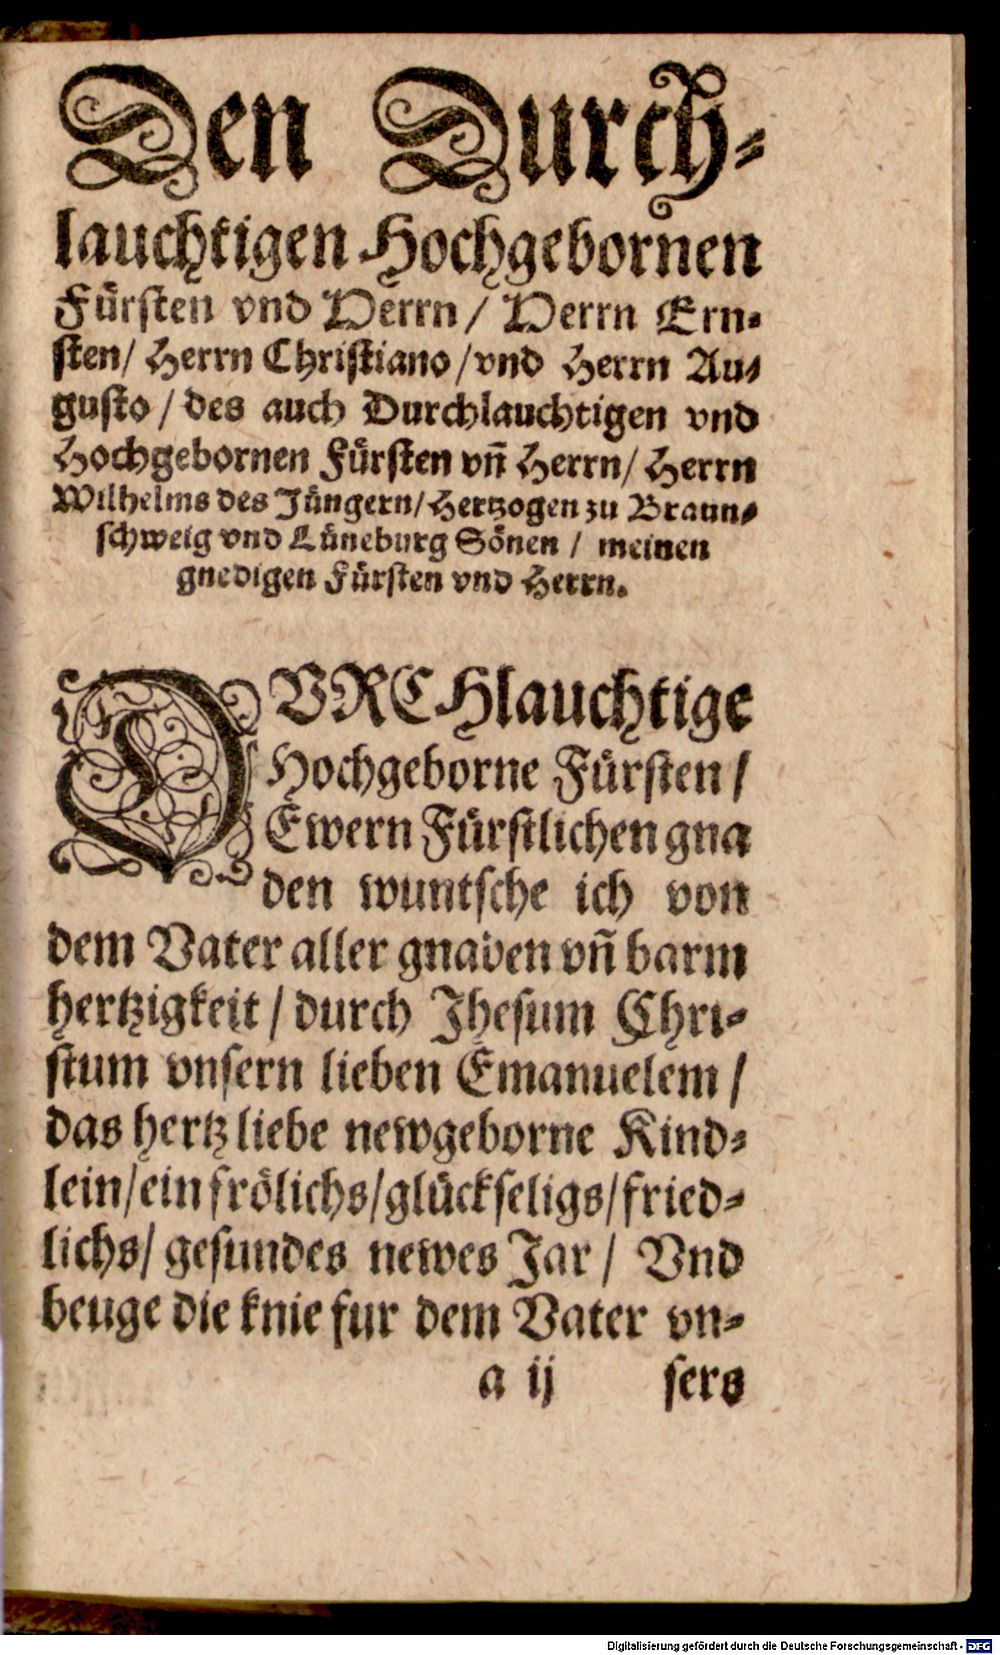 Den Durch-
lauchtigen Hochgebornen
Fürsten vnd Herrn/ Herrn Ern-
sten/ Herrn Christiano/vnd Herrn Au-
gusto/ des auch Durchlauchtigen vnd
Hochgebornen Fürsten vñ Herrn/ Herrn
Wilhelms des Jüngern/Hertzogen zu Braun-
schweig vnd Lüneburg Sönen/ meinen
gnedigen Fürsten vnd Herrn.
DVRCHlauchtige
Hochgeborne Fürsten/
Ewern Fürstlichen gna
den wuntsche ich von
dem Vater aller gnaden vñ barm
hertzigkeit/ durch Jhesum Chri-
stum vnsern lieben Emanuelem/
das hertz liebe newgeborne Kind-
lein/ein frölichs/glückseligs/fried-
lichs/ gesundes newes Jar/ Vnd
beuge die knie fur dem Vater vn-
a ij sers
Digitalisierung gefördert durch die Deutsche Forschungsgemeinschaft - DFG